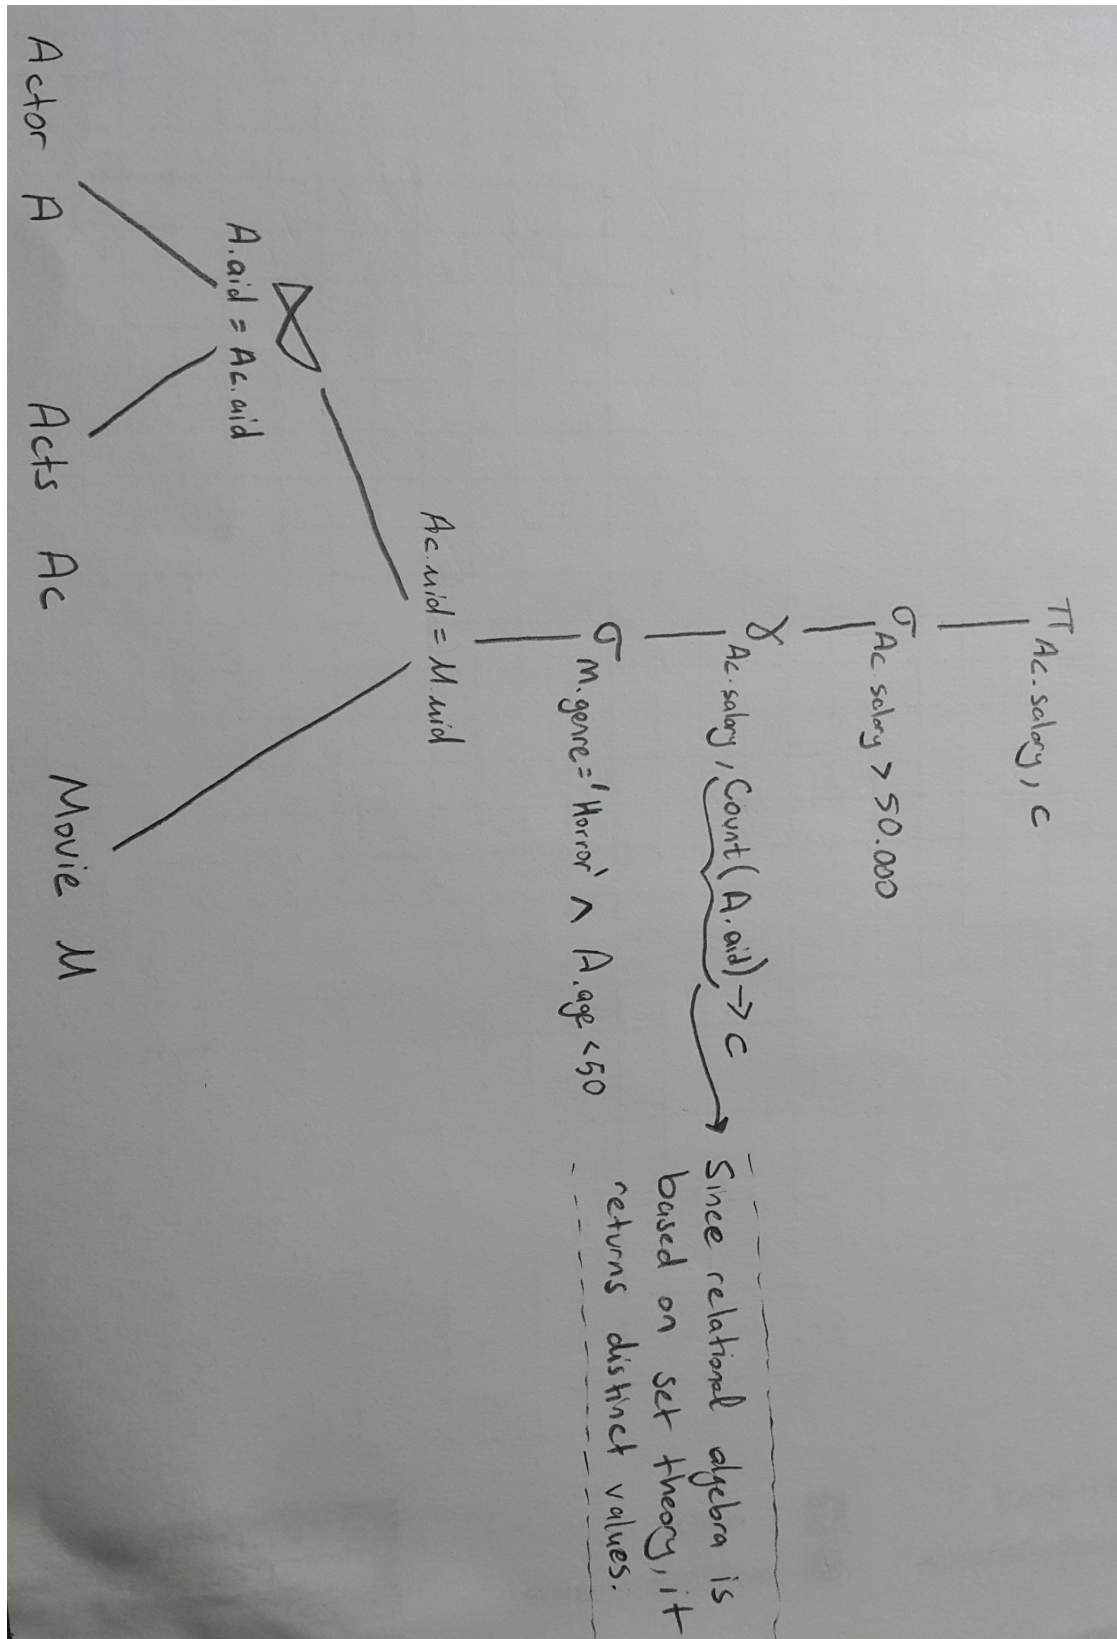 π Ac.salary, C
σ Ac.salary > 50.000
γ Ac.salary, Count(A.aid) → C
Since relational algebra is
based on set theory, it
returns distinct values.
σ M.genre='Horror' ∧ A.age < 50
Ac.mid = M.mid
⋈
A.aid = Ac.aid
Actor A
Acts Ac
Movie M